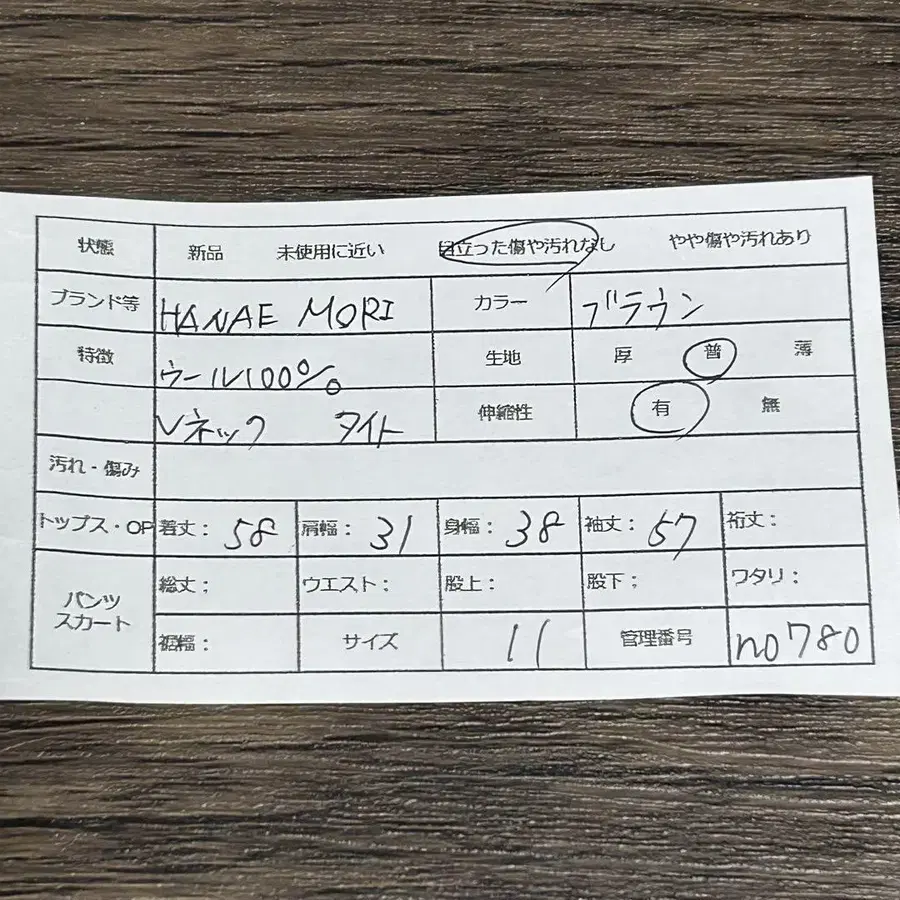 状態 新品 未使用に近い 目立った傷や汚れなし やや傷や汚れあり
ブランド等 HANAE MORI カラー ブラウン
特徴 ウール100% 生地 厚 普 薄
Vネック タイト 伸縮性 有 無
汚れ・傷み
トップス・OP 着丈: 58 肩幅: 31 身幅: 38 袖丈: 57 裄丈:
パンツ スカート 総丈; ウエスト: 股上: 股下; ワタリ:
裾幅: サイズ 11 管理番号 no780